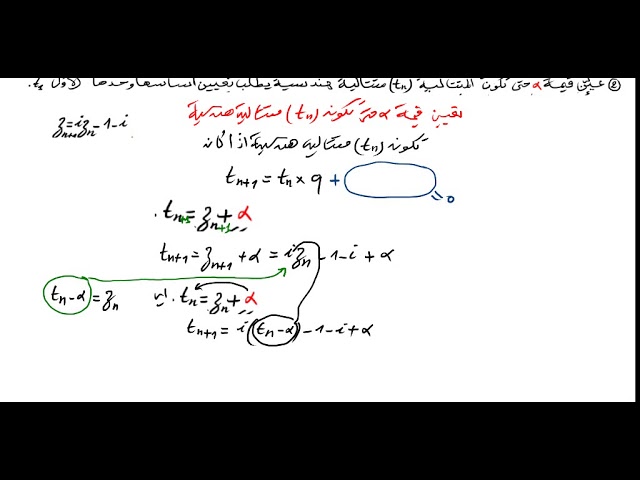 ② عيّن قيمة α حتى تكون المتتالية (tₙ) متتالية هندسية يطلب تعيين أساسها وحدها الأول t₀.
تعيين قيمة α حتى تكون (tₙ) متتالية هندسية
zₙ₊₁=izₙ-1-i
تكون (tₙ) متتالية هندسية إذا كان
tₙ₊₁ = tₙ × q +
0
. tₙ₊₁ = zₙ₊₁ + α
tₙ₊₁ = zₙ₊₁ + α = i zₙ -1-i + α
tₙ-α = zₙ
. tₙ = zₙ + α
tₙ₊₁ = i(tₙ-α) -1-i+α